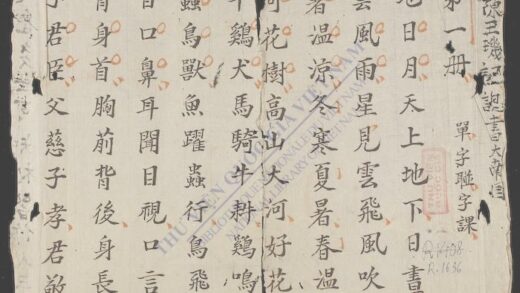 第一册
單字聯字課
地日月天上地下日晝
雲風雨星見雲飛風吹
暑温涼冬寒夏暑春温
河花樹高山大河好花
牛鷄犬馬騎牛耕鷄鳴
蟲鳥獸魚躍蟲行鳥飛
目口鼻耳聞目視口言
背身首胸前背後身長
子君臣父慈子孝君敬
THƯ VIỆN QUỐC GIA VIỆT NAM
NATIONAL LIBRARY OF VIETNAM
R.1636